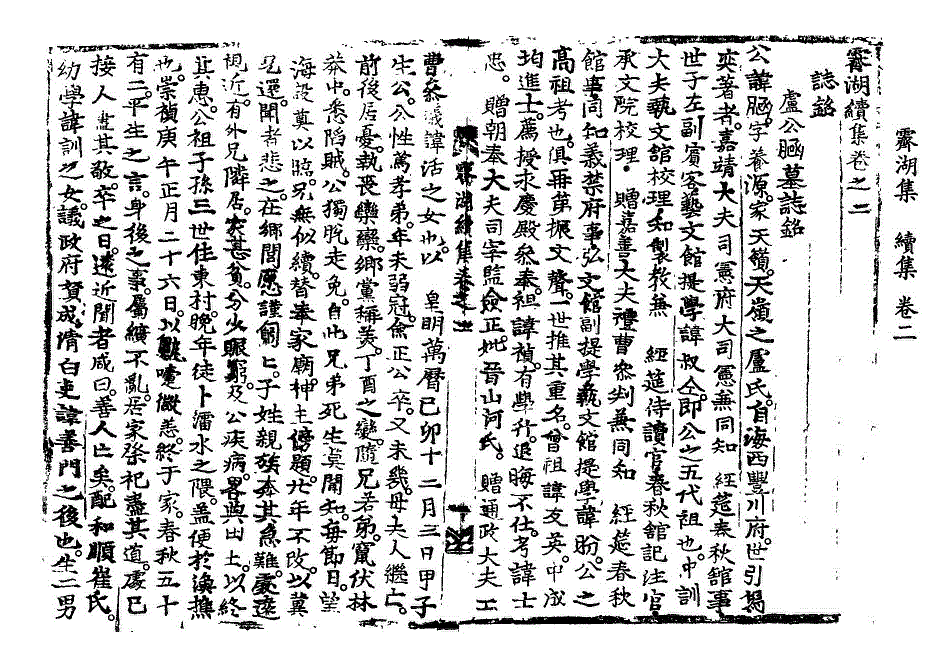 霽湖集 續集 卷二
霽湖續集卷之二
誌銘
盧公脜墓誌銘
公諱脜。字養源。家天嶺。天嶺之盧氏。自海西豐川府。世引爲
奕著者。嘉靖大夫司憲府大司憲兼同知 經筵春秋館事
世子左副賓客藝文館提學諱叔仝。即公之五代祖也。中訓
大夫藝文館校理知製敎兼 經筵侍讀官春秋館記注官
承文院校理 贈嘉善大夫禮曹參判兼同知 經筵春秋
館事同知義禁府事弘文館副提學藝文館提學諱昐。公之
高祖考也。俱再第振文聲。一世推其重名。曾祖諱友英。中成
均進士。薦授永慶殿參奉。祖諱禎。有學行。退晦不仕。考諱士
忠。贈朝奉大夫司宰監僉正。妣晉山河氏。 贈通政大夫工
霽湖續集卷之二
曹參議諱活之女也。以 皇明萬曆己卯十二月三日甲子
生公。公性篤孝弟。年未弱冠。僉正公卒。又未幾。母夫人繼亡。
前後居憂。執喪欒欒。鄕黨稱美。丁酉之變。隨兄若弟。竄伏林
莽中。悉陷賊。公獨脫走免。自此兄弟死生莫聞知。每節日。望
海設奠以照。兄無似續。替奉家廟神主傍題。卄年不改。以冀
見還。聞者悲之。在鄕閭。愿謹侗侗。子姓親族。奔其急難。處遠
視近。有外兄隣居。家甚貧。分少賑窮。及公疾病。畧典田土。以終
其惠。公祖子孫三世住東村。晚年徒卜潘水之隈。盖便於漁樵
也。崇禎庚午正月二十六日。以 嚏微恙終于家。春秋五十
有二。平生之言。身後之事。屬纊不亂。居家祭祀盡其道。處己
接人盡其敬。卒之日。遠近聞者咸曰。善人亡矣。配和順崔氏。
幼學諱訓之女。議政府贊成淸白吏諱善門之後也。生二男